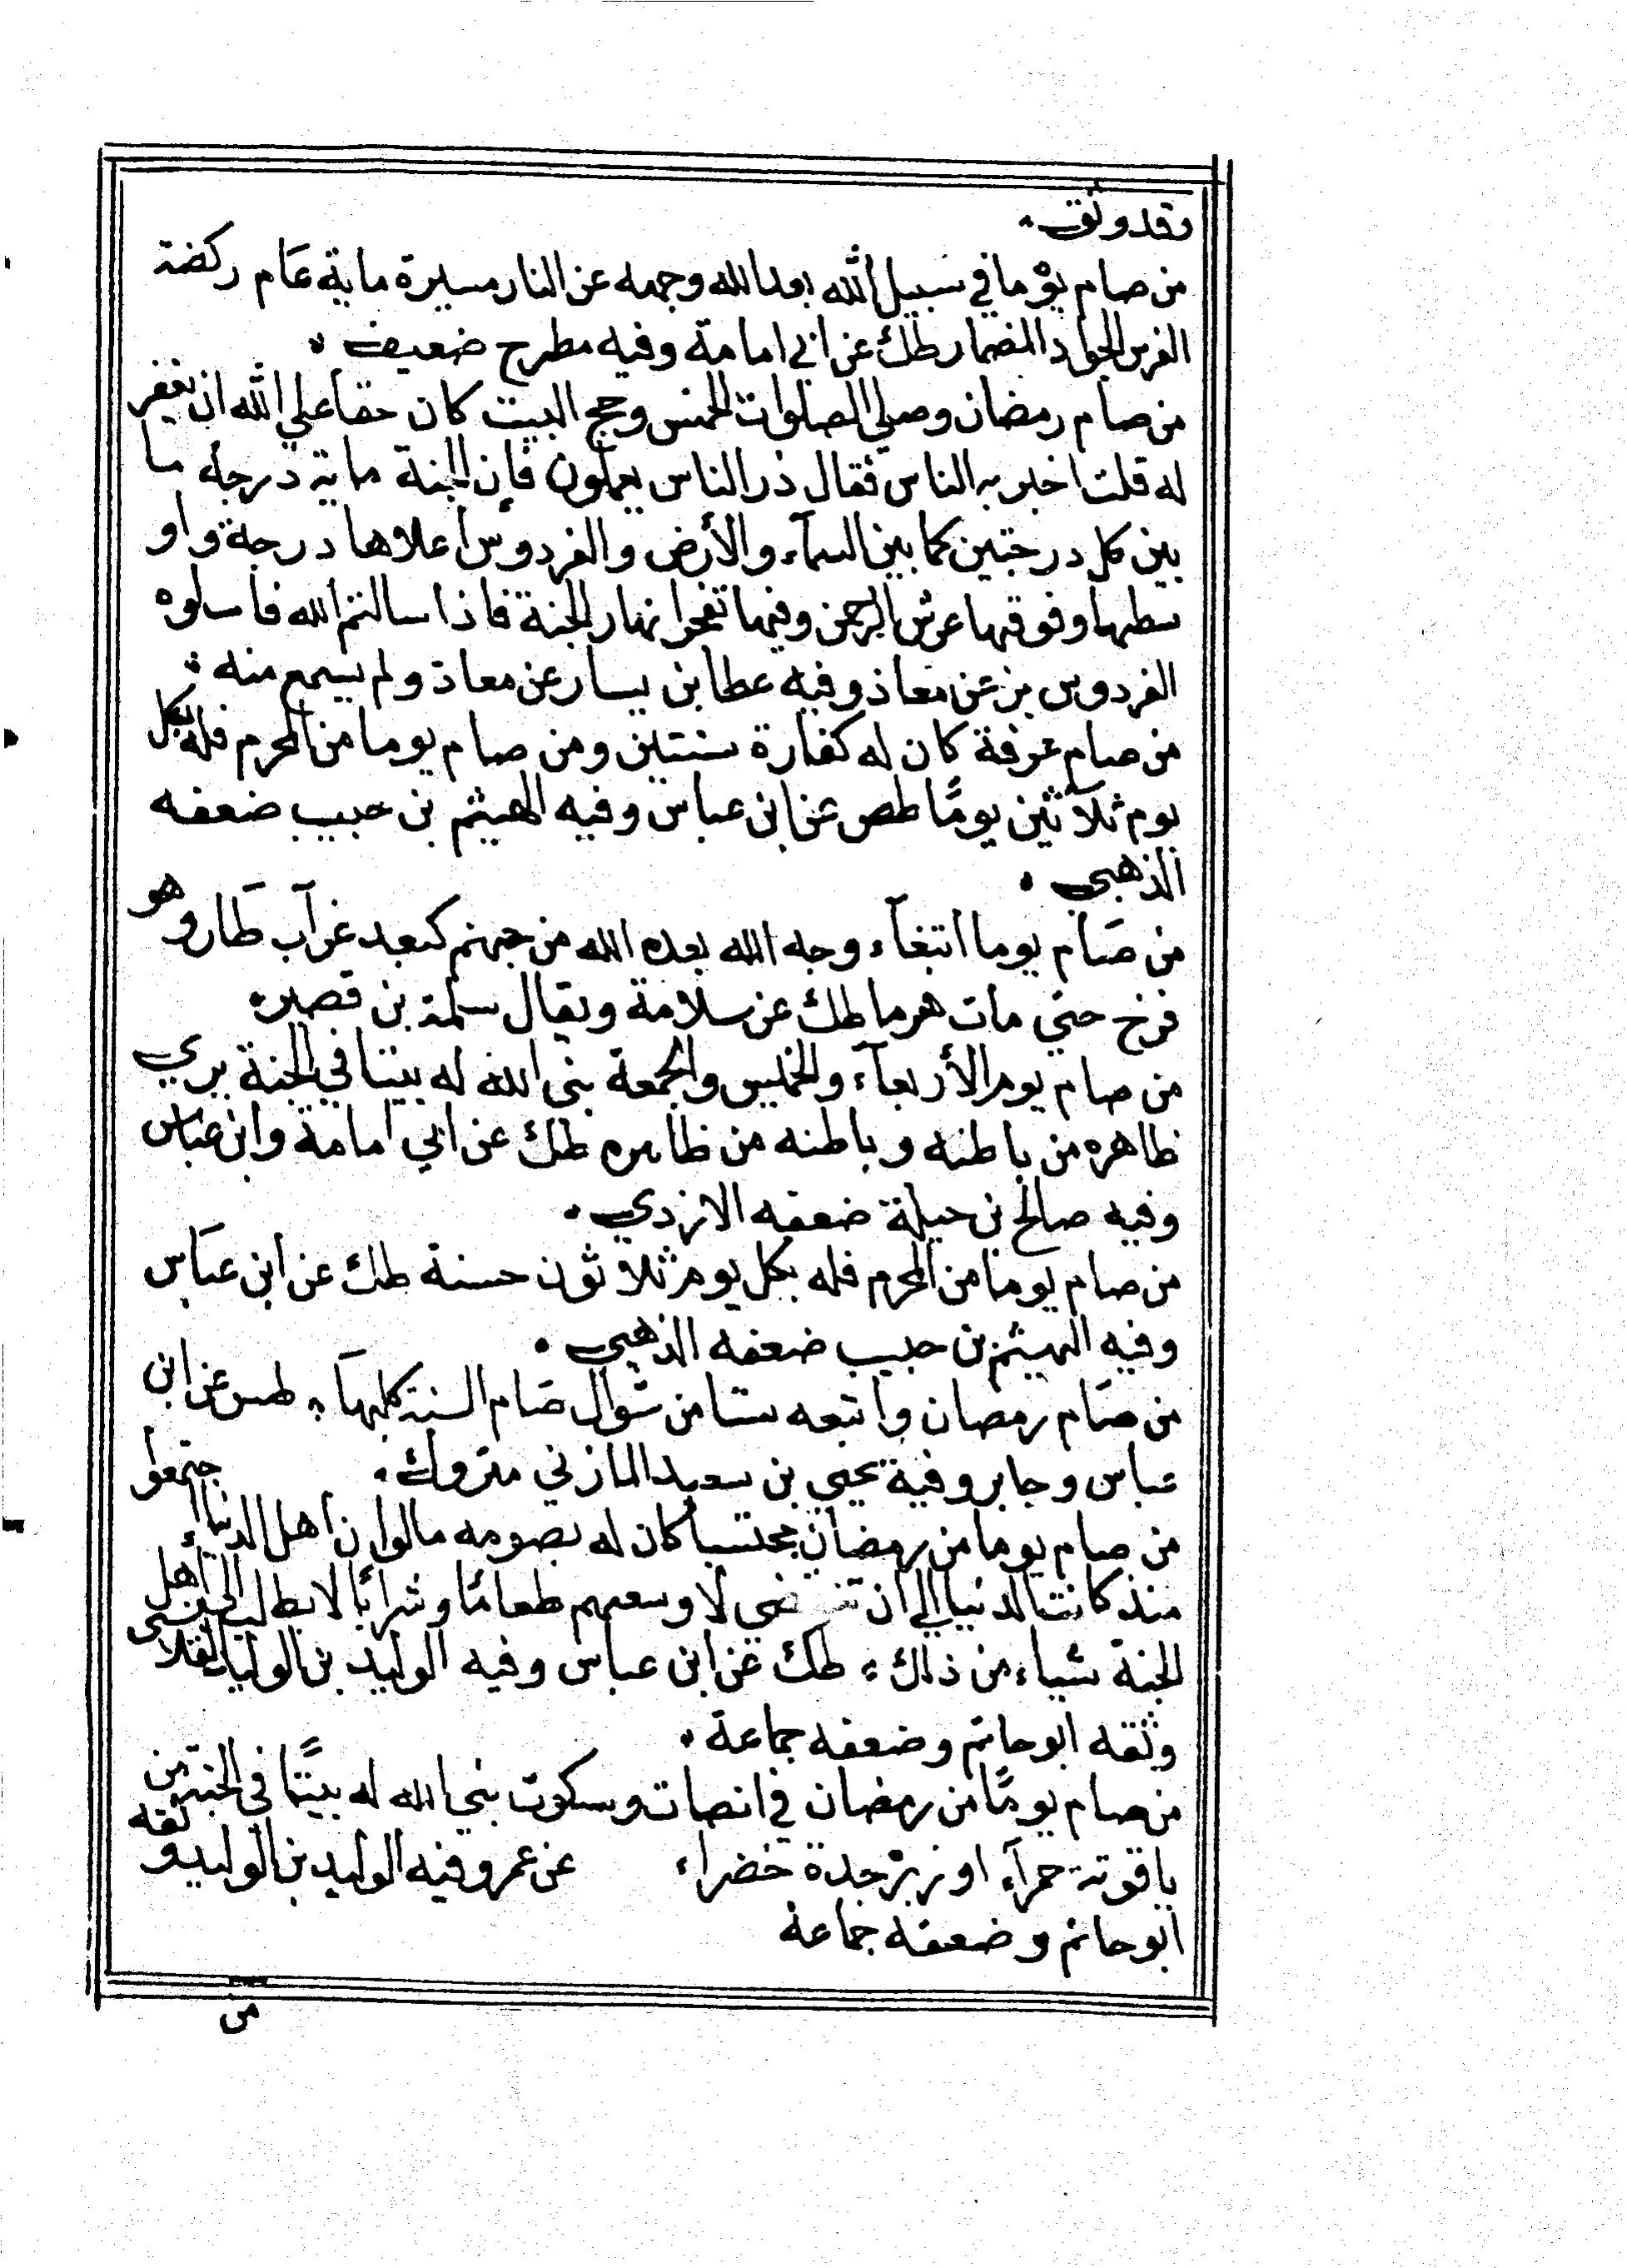 وقد وثق
من صام يوما في سبيل الله بعد الله وجهه عن النار مسيرة ماية عام ركضة
الفرس الجواد المضمار طك عن ابي امامة وفيه مطرح ضعيف
من صام رمضان وصلي الصلوات الخمس وحج البيت كان حقا علي الله ان يغفر
له قلت اخبر به الناس فقال ذر الناس يعملون فإن الجنة ماية درجة ما
بين كل درجتين كما بين السمآء والأرض والفردوس اعلاها درجة واو
سطها وفوقها عرش الرحمن وفيها تفجر انهار الجنة فاذا سالتم الله فاسلوه
الفردوس بز عن معاذ وفيه عطا بن يسار عن معاذ ولم يسمع منه
من صام عرفة كان له كفارة سنتين ومن صام يوما من المحرم فله بكل
يوم ثلاثين يومًا طص عن ابن عباس وفيه الهيثم بن حبيب ضعفه
الذهبي
من صام يوما ابتغآء وجه الله بعده الله من جهنم كبعد غرآب طار وهو
فرخ حتي مات هرما طك عن سلامة ويقال سلمة بن قصير
من صام يوم الأربعآء والخميس والجمعة بنى الله له بيتا في الجنة يري
ظاهره من باطنه وباطنه من ظاهره طك عن ابي امامة وابن عباس
وفيه صالح بن جبلة ضعفه الازدي
من صام يوما من المحرم فله بكل يوم ثلاثون حسنة طك عن ابن عباس
وفيه الهيثم بن حبيب ضعفه الذهبي
من صام رمضان واتبعه ستا من شوال صام السنة كلها طس عن ابن
عباس وجابر وفيه يحيي بن سعيد المازني متروك
من صام يوما من رمضان محتسبا كان له بصومه مالوا ن اهل الدنيا اجتمعوا
منذ كانت الدنيا إلي ان تنقضي لاوسعهم طعامًا وشرابًا لا يطلب اهل
الجنة شياء من ذلك طك عن ابن عباس وفيه الوليد بن الوليد القلانسي
وثقه ابو حاتم وضعفه جماعة
من صام يومًا من رمضان في انصات وسكوت بني الله له بيتًا في الجنة من
ياقوتة حمرآء او زبرجدة خضراء عن عمر وفيه الوليد بن الوليد وثقه
ابو حاتم وضعفه جماعة
من